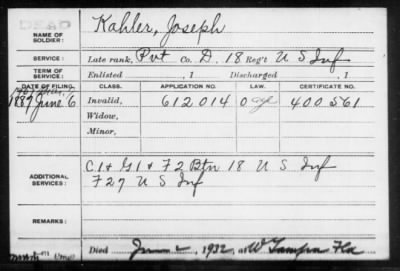 DEAD
NAME OF SOLDIER: Kahler, Joseph
SERVICE: Late rank, Pvt Co. D, 18 Reg't U S Inf
TERM OF SERVICE: Enlisted , 1 Discharged , 1
DATE OF FILING. CLASS. APPLICATION NO. LAW. CERTIFICATE NO.
1887 June 6 Invalid, 612014 400561
Widow,
Minor,
ADDITIONAL SERVICES: C1 & G1 & F2 Btn 18 U S Inf
F 27 U S Inf
REMARKS:
Died June 2, 1932, at W Tampa Fla